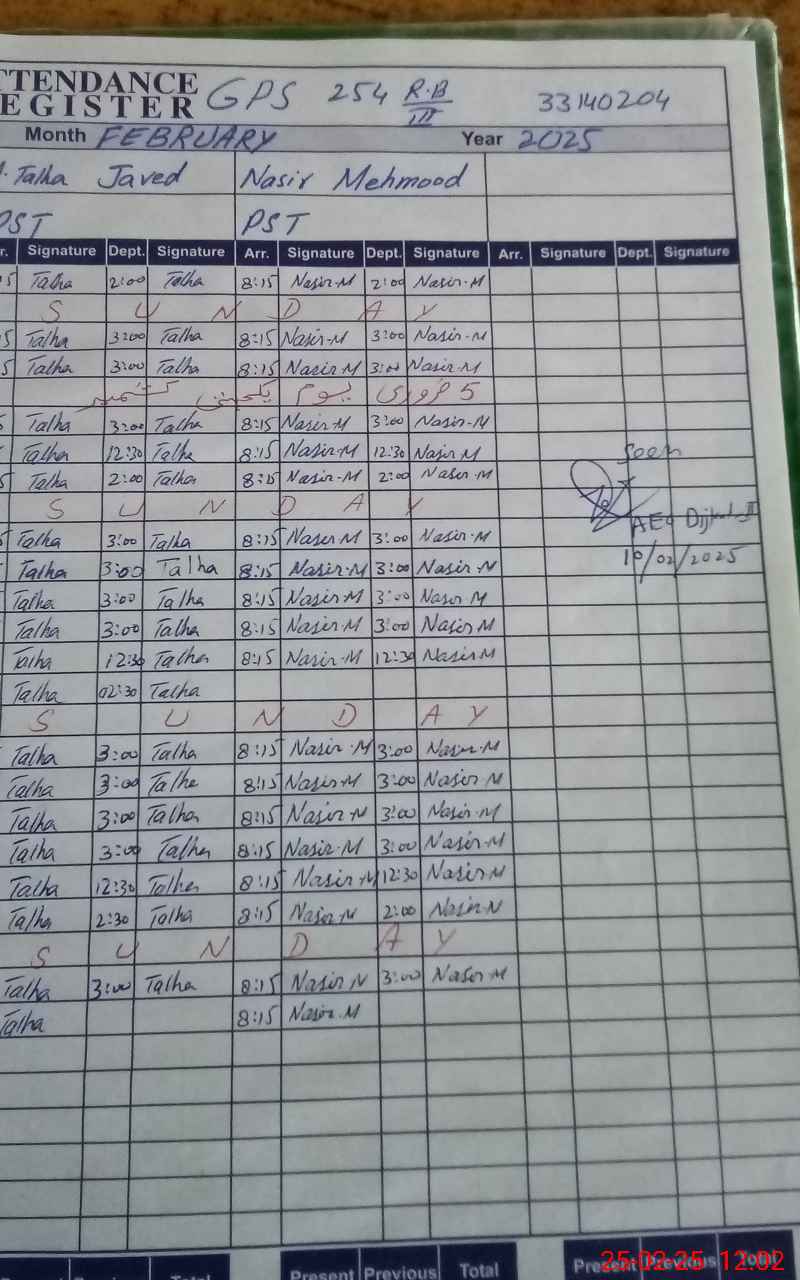 TTENDANCE
EGISTER GPS 254 R.B/III 33140204
Month FEBRUARY Year 2025
Talha Javed Nasir Mehmood
PST PST
r. Signature Dept. Signature Arr. Signature Dept. Signature Arr. Signature Dept. Signature
5 Talha 2:00 Talha 8:15 Nasir-M 2:00 Nasir-M
S U N D A Y
5 Talha 3:00 Talha 8:15 Nasir-M 3:00 Nasir-M
5 Talha 3:00 Talha 8:15 Nasir M 3:00 Nasir-M
5 فروری یوم یکجہتی کشمیر
5 Talha 3:00 Talha 8:15 Nasir-M 3:00 Nasir-M
Talha 12:30 Talha 8:15 Nasir-M 12:30 Nasir M
Seen
5 Talha 2:00 Talha 8:15 Nasir-M 2:00 Nasir-M
S U N D A Y
AEO
Talha 3:00 Talha 8:15 Nasir M 3:00 Nasir-M
10/02/2025
Talha 3:00 Talha 8:15 Nasir-M 3:00 Nasir-M
Talha 3:00 Talha 8:15 Nasir-M 3:00 Nasir M
Talha 3:00 Talha 8:15 Nasir-M 3:00 Nasir M
Talha 12:30 Talha 8:15 Nasir-M 12:30 Nasir M
Talha 02:30 Talha
S U N D A Y
Talha 3:00 Talha 8:15 Nasir-M 3:00 Nasir-M
Talha 3:00 Talha 8:15 Nasir-M 3:00 Nasir-M
Talha 3:00 Talha 8:15 Nasir M 3:00 Nasir-M
Talha 3:00 Talha 8:15 Nasir-M 3:00 Nasir-M
Talha 12:30 Talha 8:15 Nasir M 12:30 Nasir-M
Talha 2:30 Talha 8:15 Nasir M 2:00 Nasir-M
S U N D A Y
Talha 3:00 Talha 8:15 Nasir M 3:00 Nasir M
Talha 8:15 Nasir-M
Total Present Previous Total Present Previous Total
25-02-25 12:02